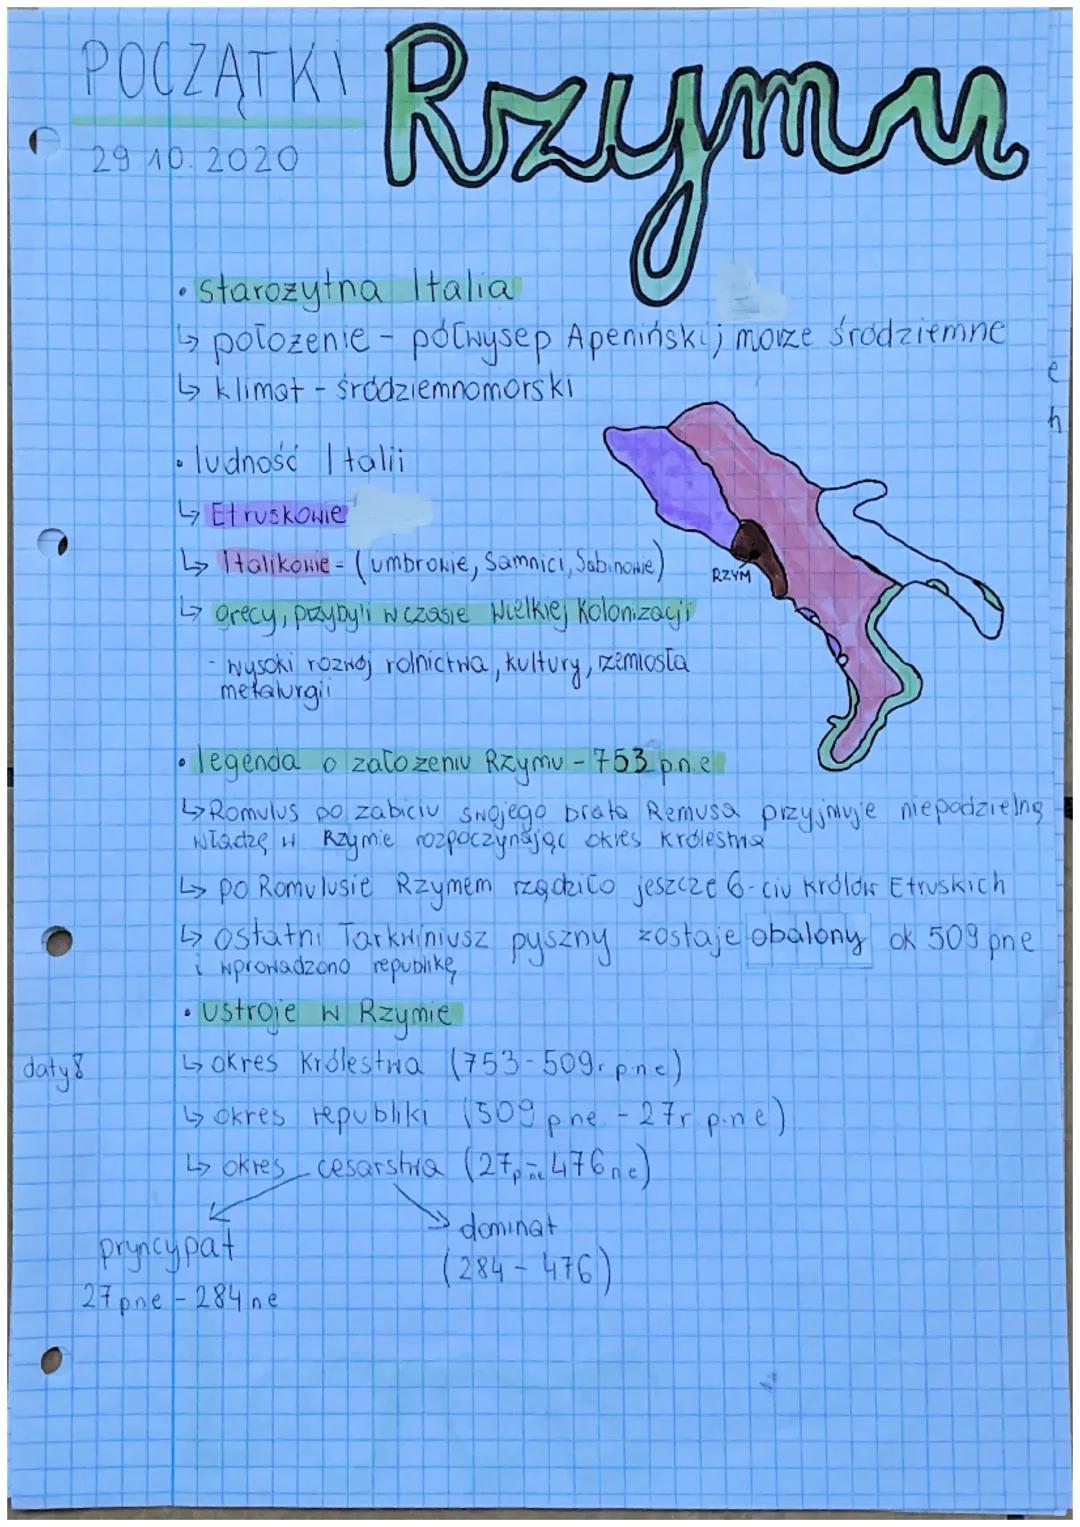 POCZĄTKI Rzymu
29.10.2020
• starożytna Italia
↳ położenie - półwysep Apeniński; morze śródziemne
↳ klimat - śródziemnomorski
• ludność Italii
↳ Etruskowie
↳ Italikowie - (umbrowie, Samnici, Sabinowie)
RZYM
↳ grecy, przybyli w czasie Wielkiej Kolonizacji
- wysoki rozwój rolnictwa, kultury, rzemiosła
metalurgii
• legenda o założeniu Rzymu - 753 p.n.e
↳ Romulus po zabiciu swojego brata Remusa przyjmuje niepodzielną
władzę w Rzymie rozpoczynając okres królestwa
↳ po Romulusie Rzymem rządziło jeszcze 6-ciu królów Etruskich
↳ ostatni Tarkwiniusz pyszny zostaje obalony ok 509 pne
i wprowadzono republikę
• ustroje w Rzymie
daty8
↳ okres królestwa (753-509r p.n.e)
↳ okres republiki (509 pne - 27r p.n.e)
↳ okres cesarstwa (27 pne - 476 n.e)
pryncypat
27 pne - 284 ne
dominat
(284 - 476)
e
h